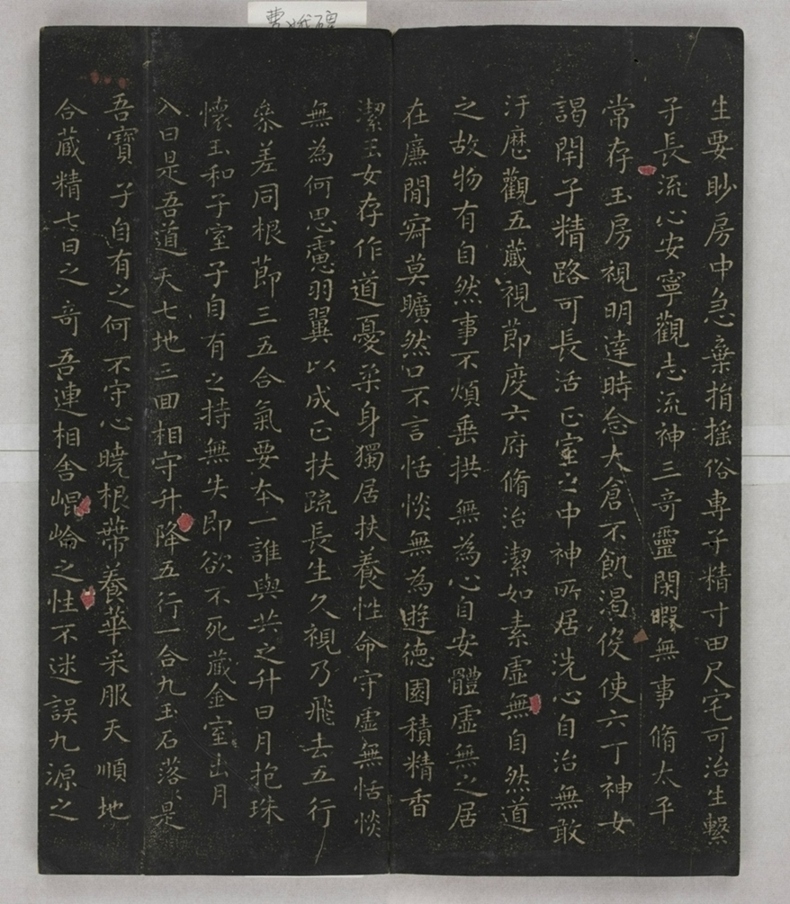 曹娥碑
生要眇房中急棄捐揺俗專子精寸田尺宅可治生繫
子長流心安寧觀志流神三奇靈閑暇無事脩太平
常存玉房視明達時念大倉不飢渴役使六丁神女
謁閉子精路可長活正室之中神所居洗心自治無敢
汙歷觀五藏視節度六府脩治潔如素虛無自然道
之故物有自然事不煩垂拱無為心自安體虛無之居
在廉閒寂莫曠然口不言恬惔無為遊德園積精香
潔玉女存作道憂柔身獨居扶養性命守虛無恬惔
無為何思慮羽翼以成正扶疏長生久視乃飛去五行
參差同根節三五合氣要本一誰與共之升日月抱珠
懷玉和子室子自有之持無失即欲不死藏金室出月
入日是吾道天七地三回相守升降五行一合九玉石落落是
吾寶子自有之何不守心曉根蔕養華采服天順地
合藏精七日之奇吾連相舍崐崘之性不迷誤九源之